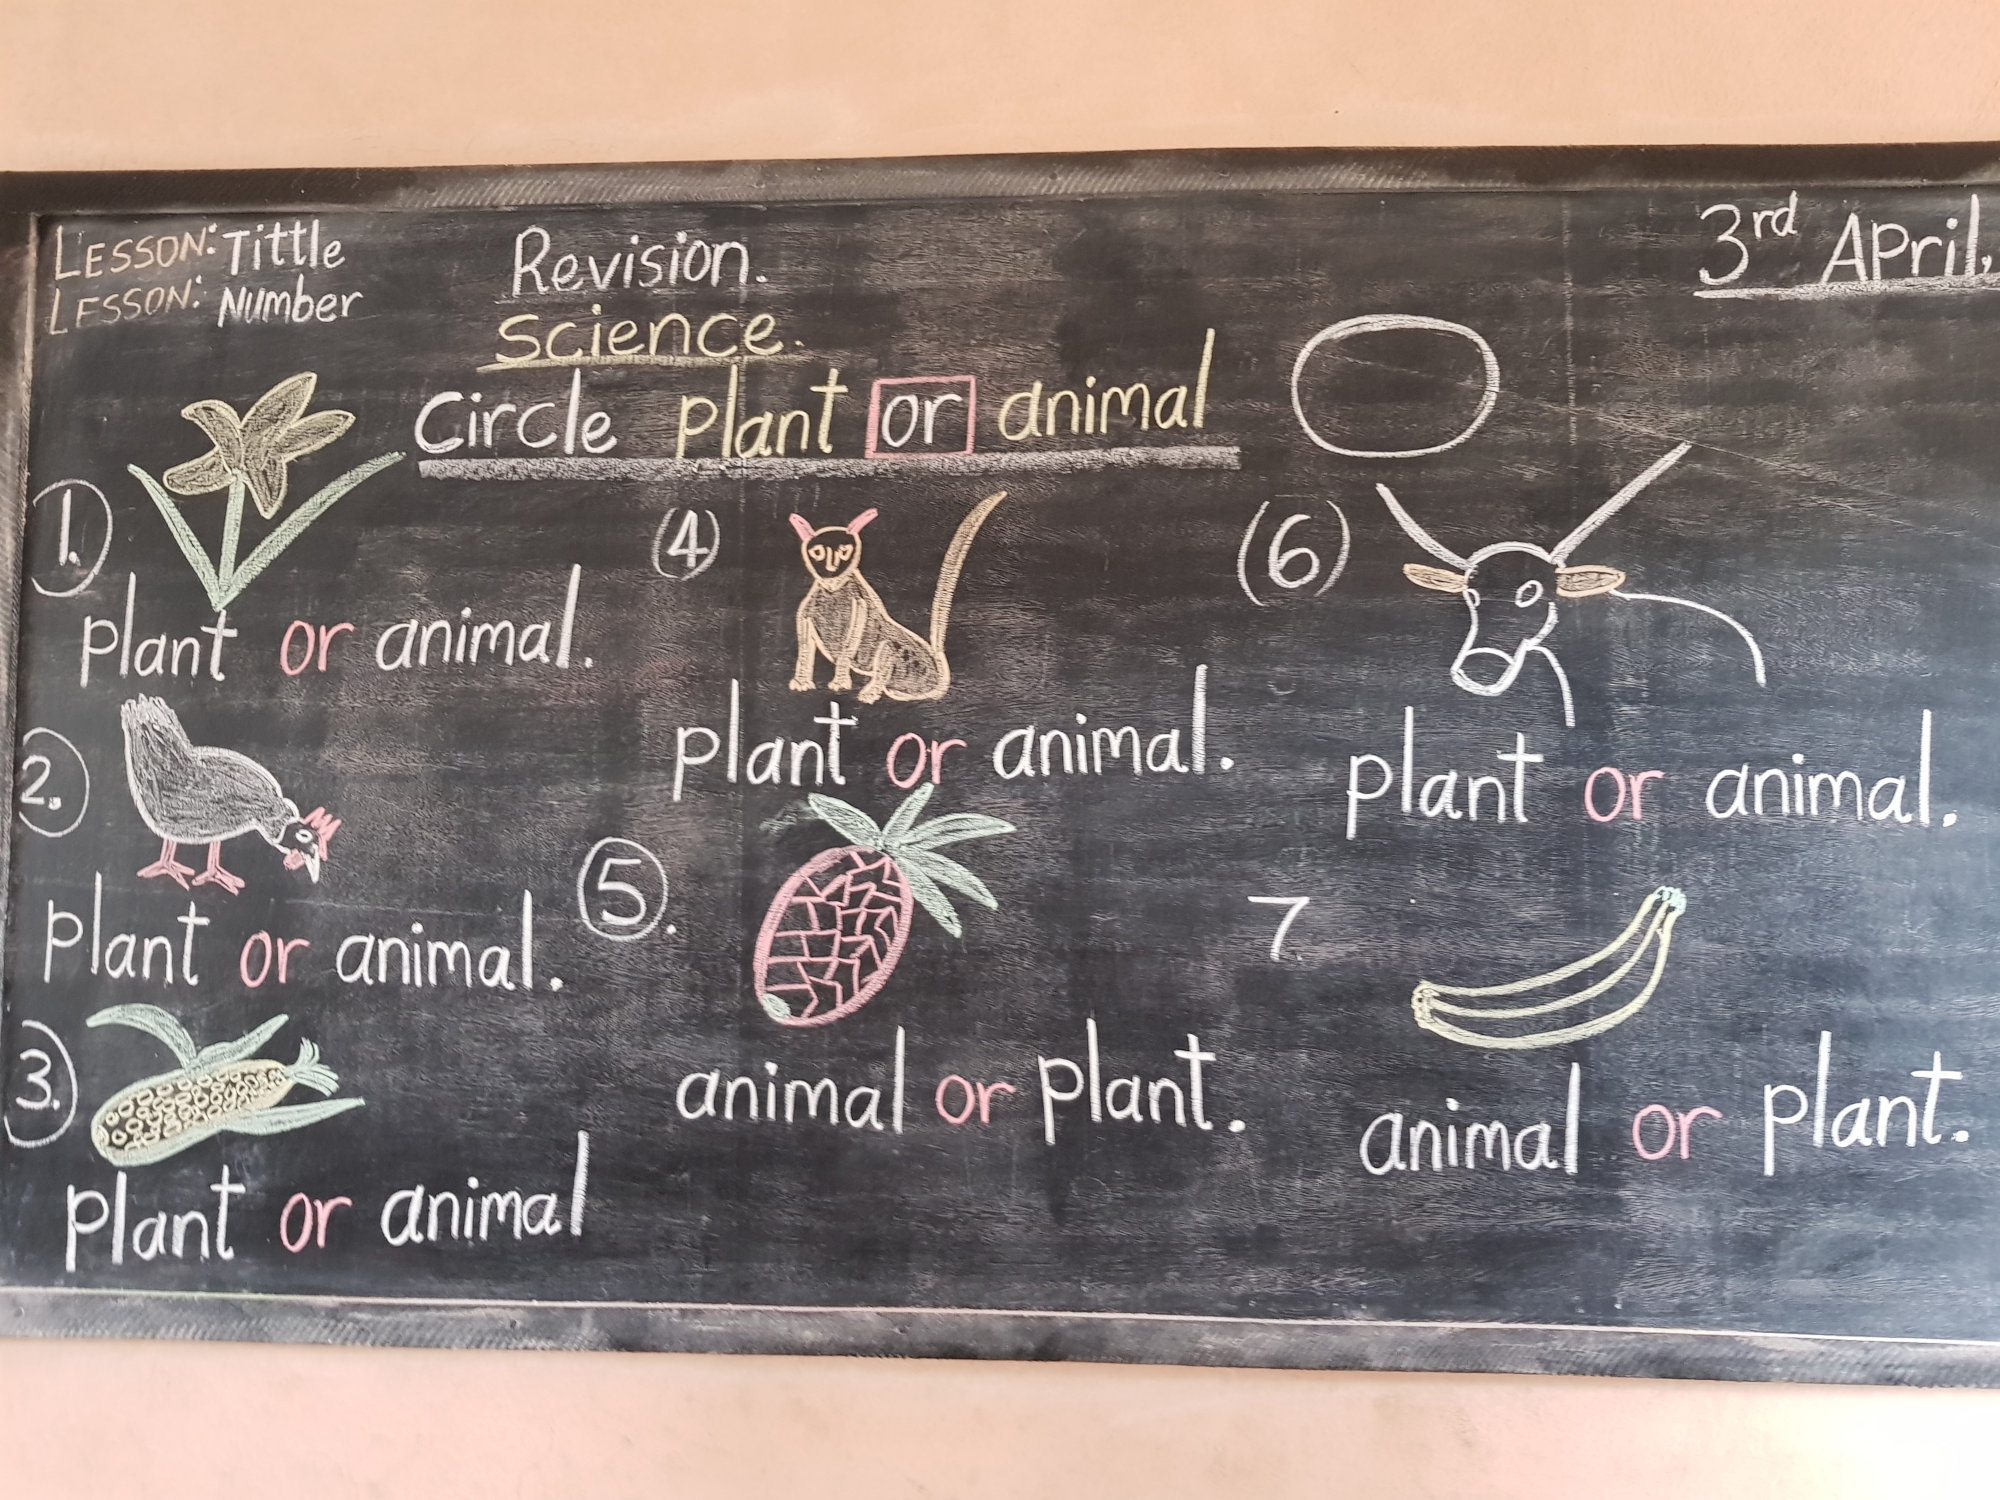 LESSON: Tittle
LESSON: Number
Revision.
Science.
3rd April,
Circle plant or animal
1.
plant or animal.
2.
plant or animal.
3.
plant or animal
(4)
plant or animal.
5.
animal or plant.
(6)
plant or animal.
7.
animal or plant.